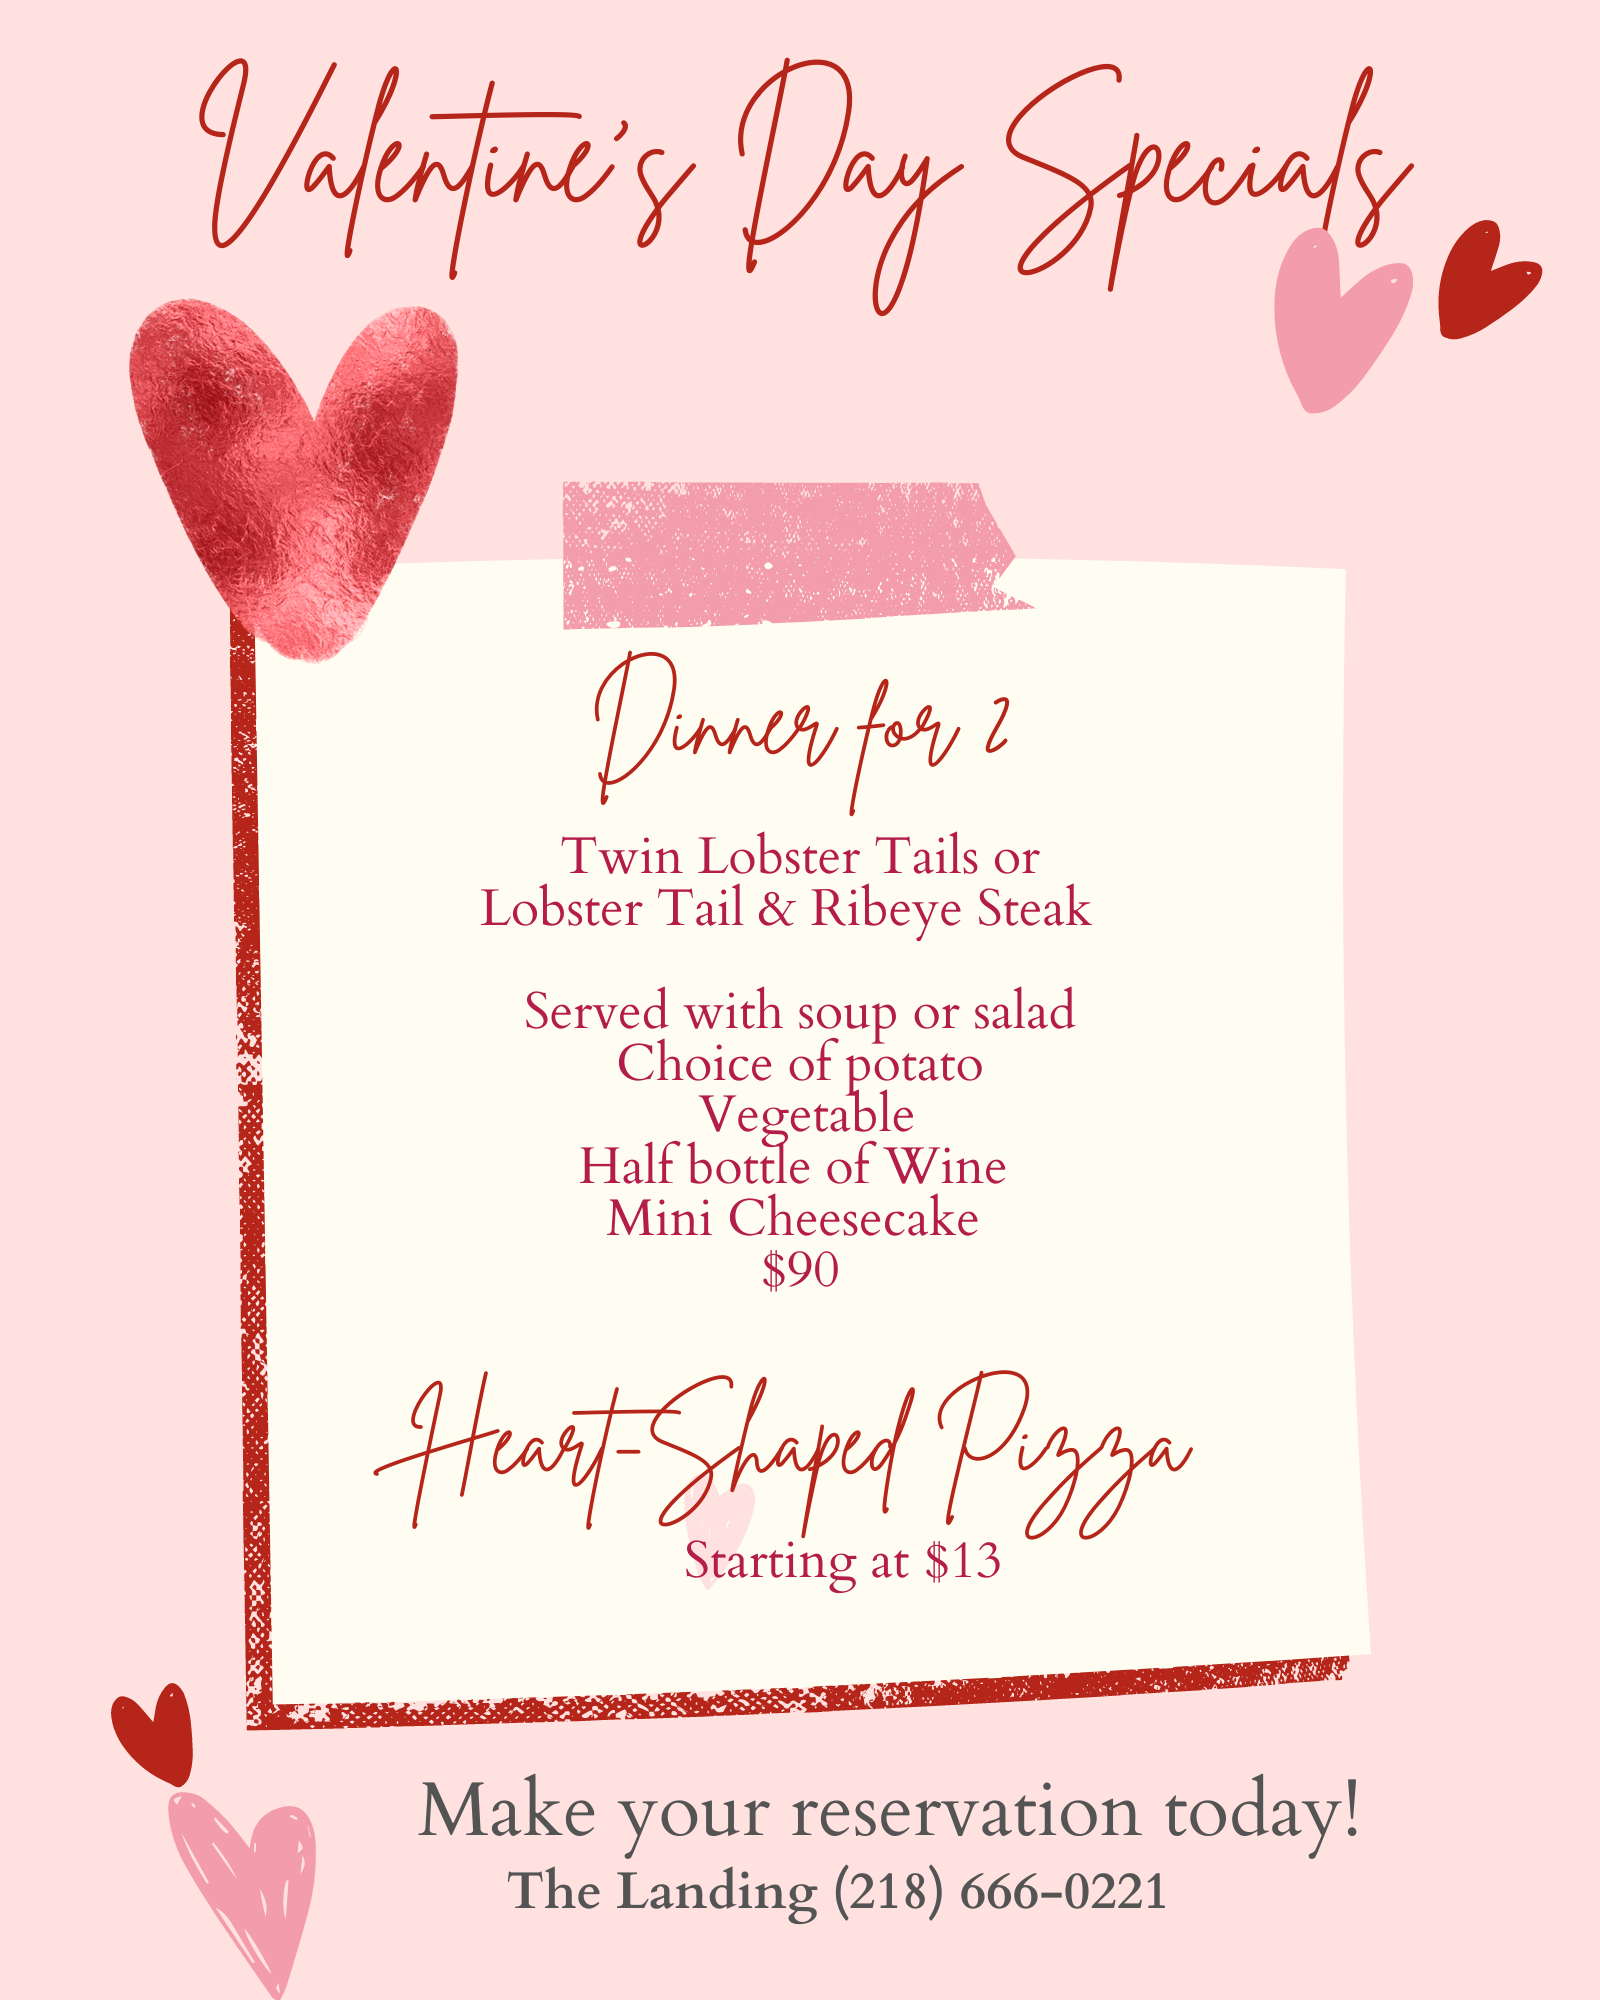 Valentine's Day Specials
Dinner for 2
Twin Lobster Tails or
Lobster Tail & Ribeye Steak
Served with soup or salad
Choice of potato
Vegetable
Half bottle of Wine
Mini Cheesecake
$90
Heart-Shaped Pizza
Starting at $13
Make your reservation today!
The Landing (218) 666-0221